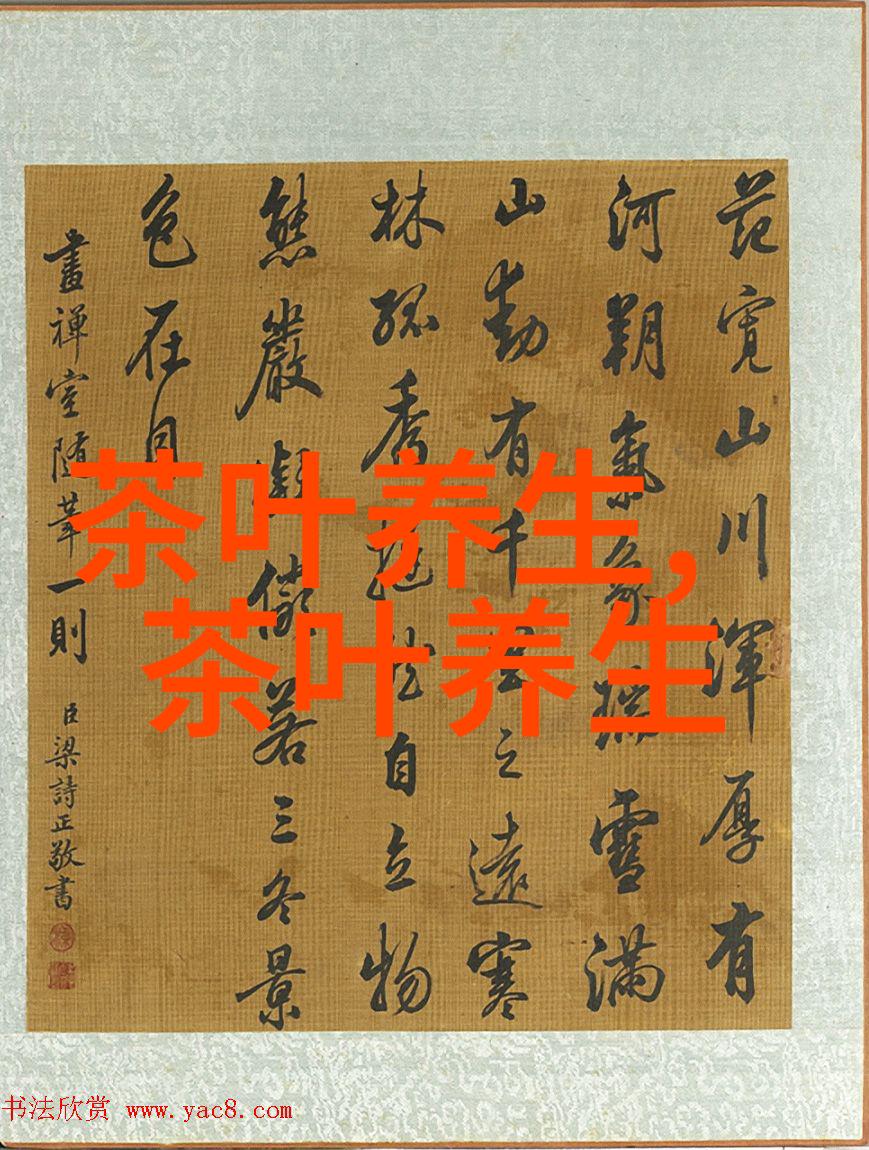 范寬山川渾厚有
河朔氣象瑞雪滿
山動有千里之遠寒
林孤秀挺然自立物
態嚴凝儼若三冬景
色在目
畫禪室随筆一則 臣梁詩正敬書
茶叶养生,
茶叶养生
书法欣赏 www.yac8.com